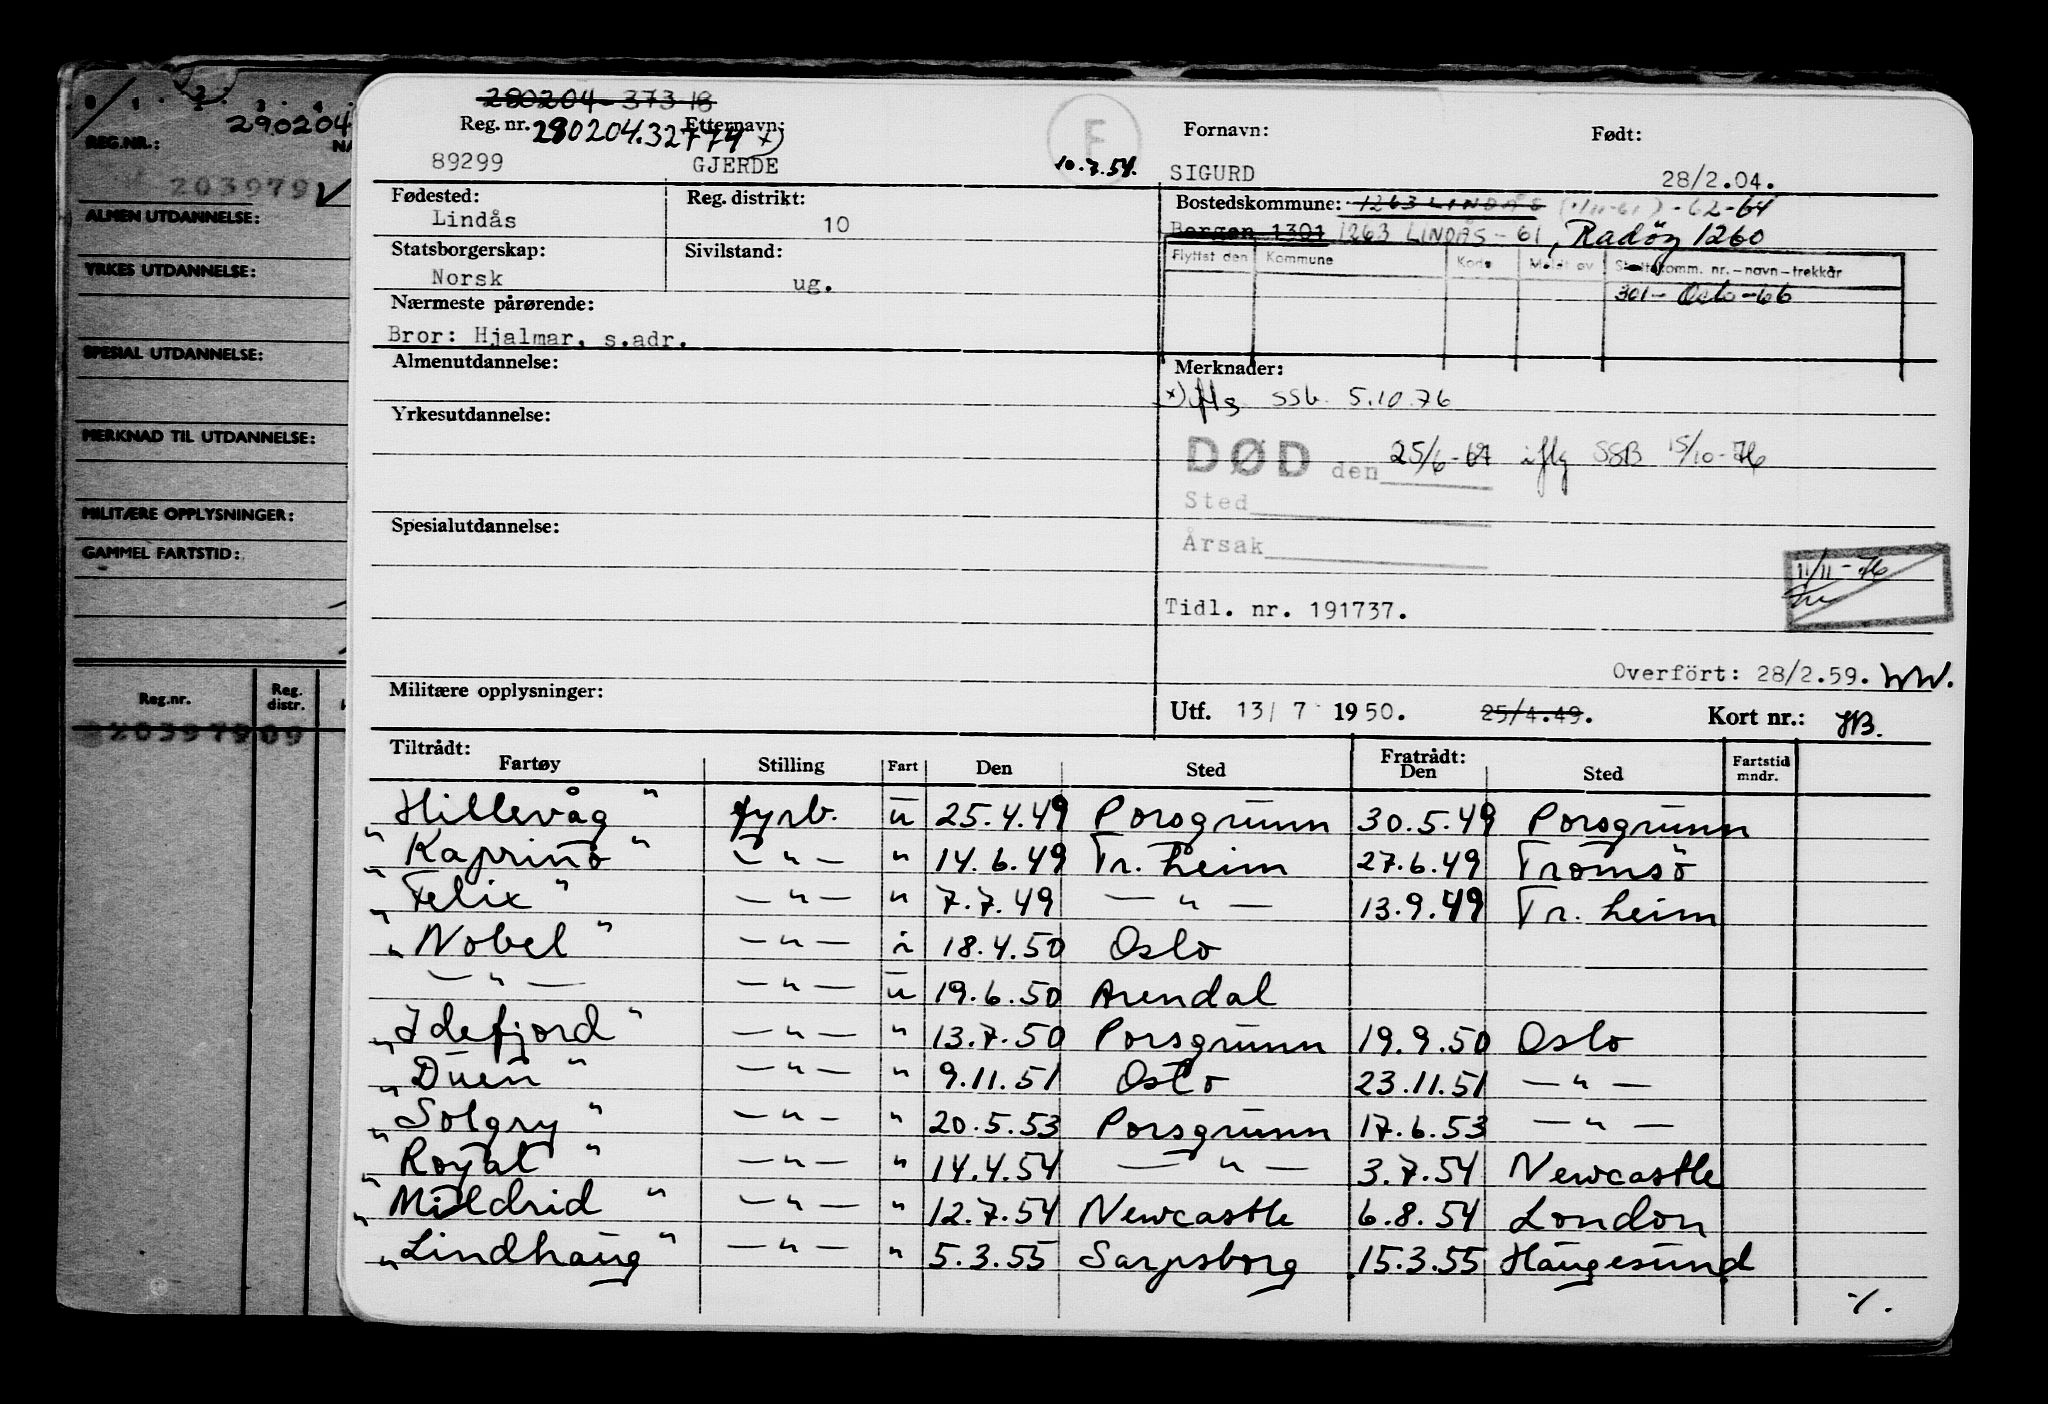 0 1 2 3 4
290204
REG.NR.:
203979
ALMEN UTDANNELSE:
YRKES UTDANNELSE:
SPESIAL UTDANNELSE:
MERKNAD TIL UTDANNELSE:
MILITÆRE OPPLYSNINGER:
GAMMEL FARTSTID:
Reg.nr. Reg. distr.
203979 09
280204-373 18
Reg. nr. 280204.32779 x) Etternavn: F Fornavn: Født:
89299 GJERDE 10.7.54. SIGURD 28/2.04.
Fødested: Reg. distrikt: Bostedskommune: 1263 LINDÅS (1/11-61) - 62-64
Lindås 10 Bergen 1301 1263 LINDÅS - 61, Radöy 1260
Statsborgerskap: Sivilstand: Flyttet den Kommune Kode Meldt av Skattekomm. nr. - navn - trekkår
Norsk ug. 301 - Oslo - 66
Nærmeste pårørende:
Bror: Hjalmar, s.adr.
Almenutdannelse: Merknader:
x) iflg SSb. 5.10.76
Yrkesutdannelse:
DØD den 25/6-67 iflg SSB 15/10-76
Sted
Spesialutdannelse:
Årsak
11/11-76
Tidl. nr. 191737.
Overfört: 28/2.59. WW.
Militære opplysninger:
Utf. 13/ 7 1950. 25/4.49. Kort nr.: HB.
Tiltrådt: Fratrådt:
Fartøy Stilling Fart Den Sted Den Sted Fartstid mndr.
Hillevåg " fyrb. u 25.4.49 Porsgrunn 30.5.49 Porsgrunn
" Kaprino " — " — " 14.6.49 Tr. heim 27.6.49 Tromsö
" Felix " — " — " 7.7.49 — " — 13.9.49 Tr. heim
" Nobel " — " — i 18.4.50 Oslo
— " — — " — u 19.6.50 Arendal
Idefjord " — " — " 13.7.50 Porsgrunn 19.9.50 Oslo
" Duen " — " — " 9.11.51 Oslo 23.11.51 — " —
" Solgry " — " — " 20.5.53 Porsgrunn 17.6.53 — " —
" Royal " — " — " 14.4.54 — " — 3.7.54 Newcastle
" Mildrid " — " — " 12.7.54 Newcastle 6.8.54 London
" Lindhaug " — " — " 5.3.55 Sarpsborg 15.3.55 Haugesund
-/.